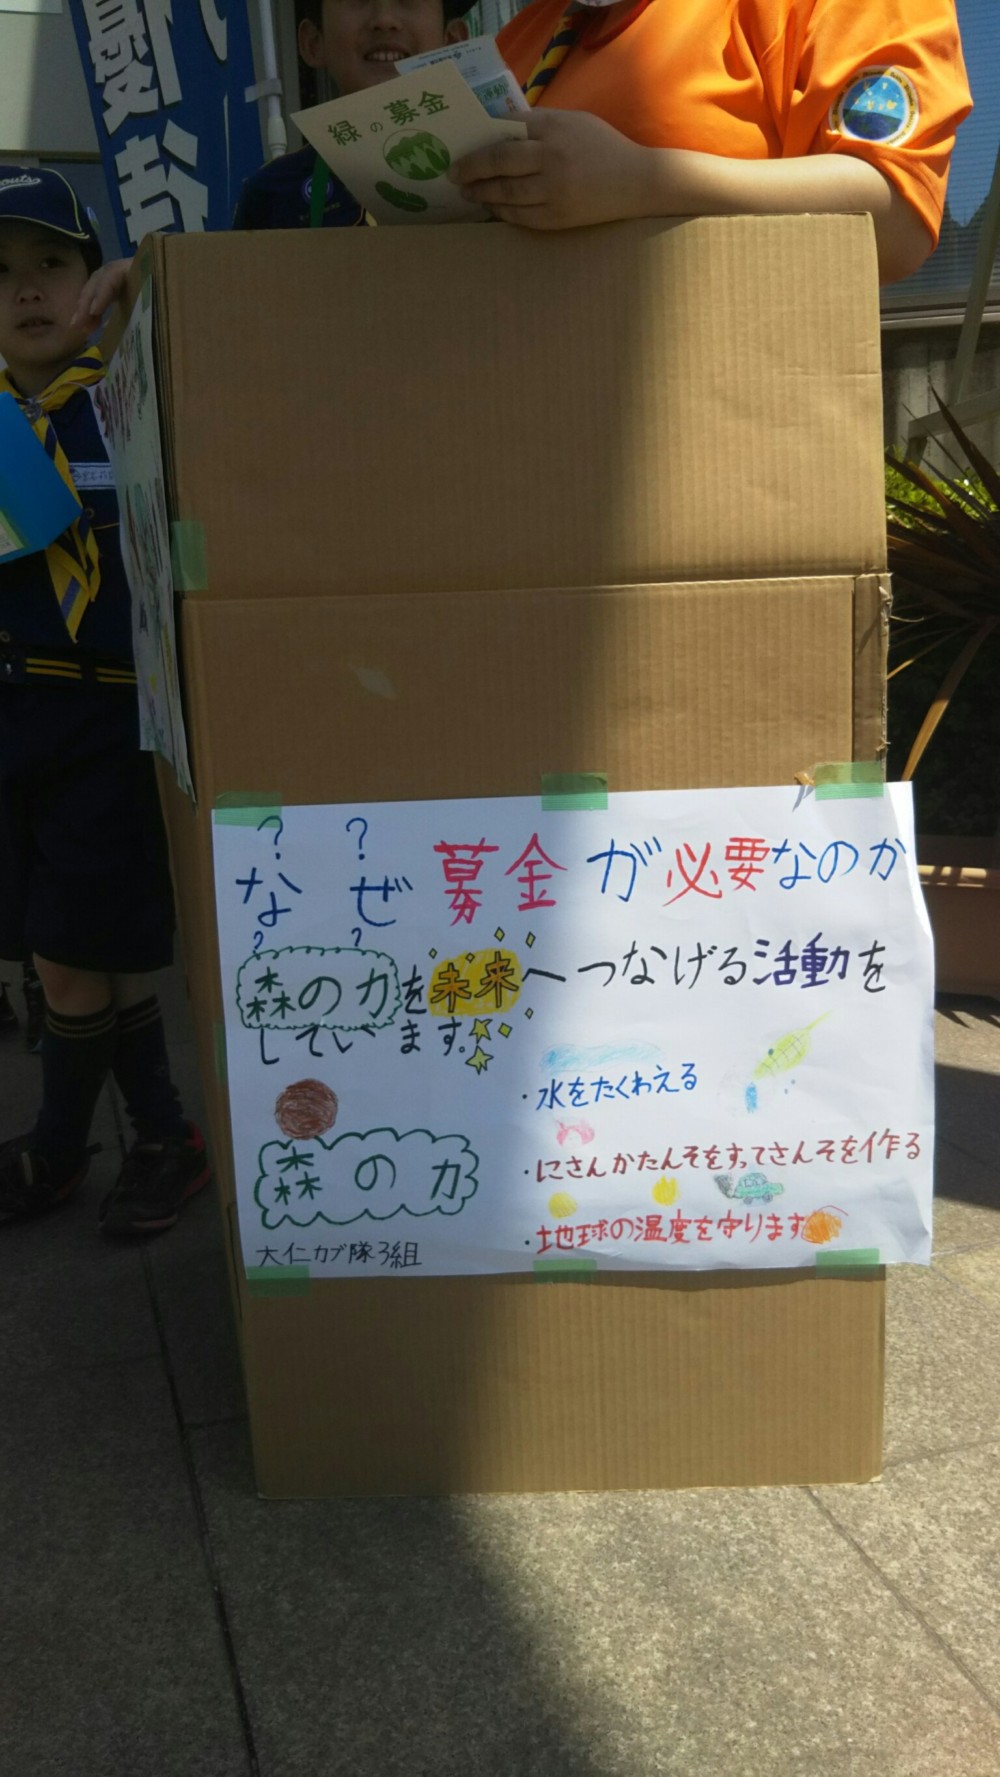 緑の募金
? ?
なぜ募金が必要なのか
? ?
森の力を未来へつなげる活動を
しています。
・水をたくわえる
・にさんかたんそをすってさんそを作る
森の力
・地球の温度を守ります
大仁カブ隊3組